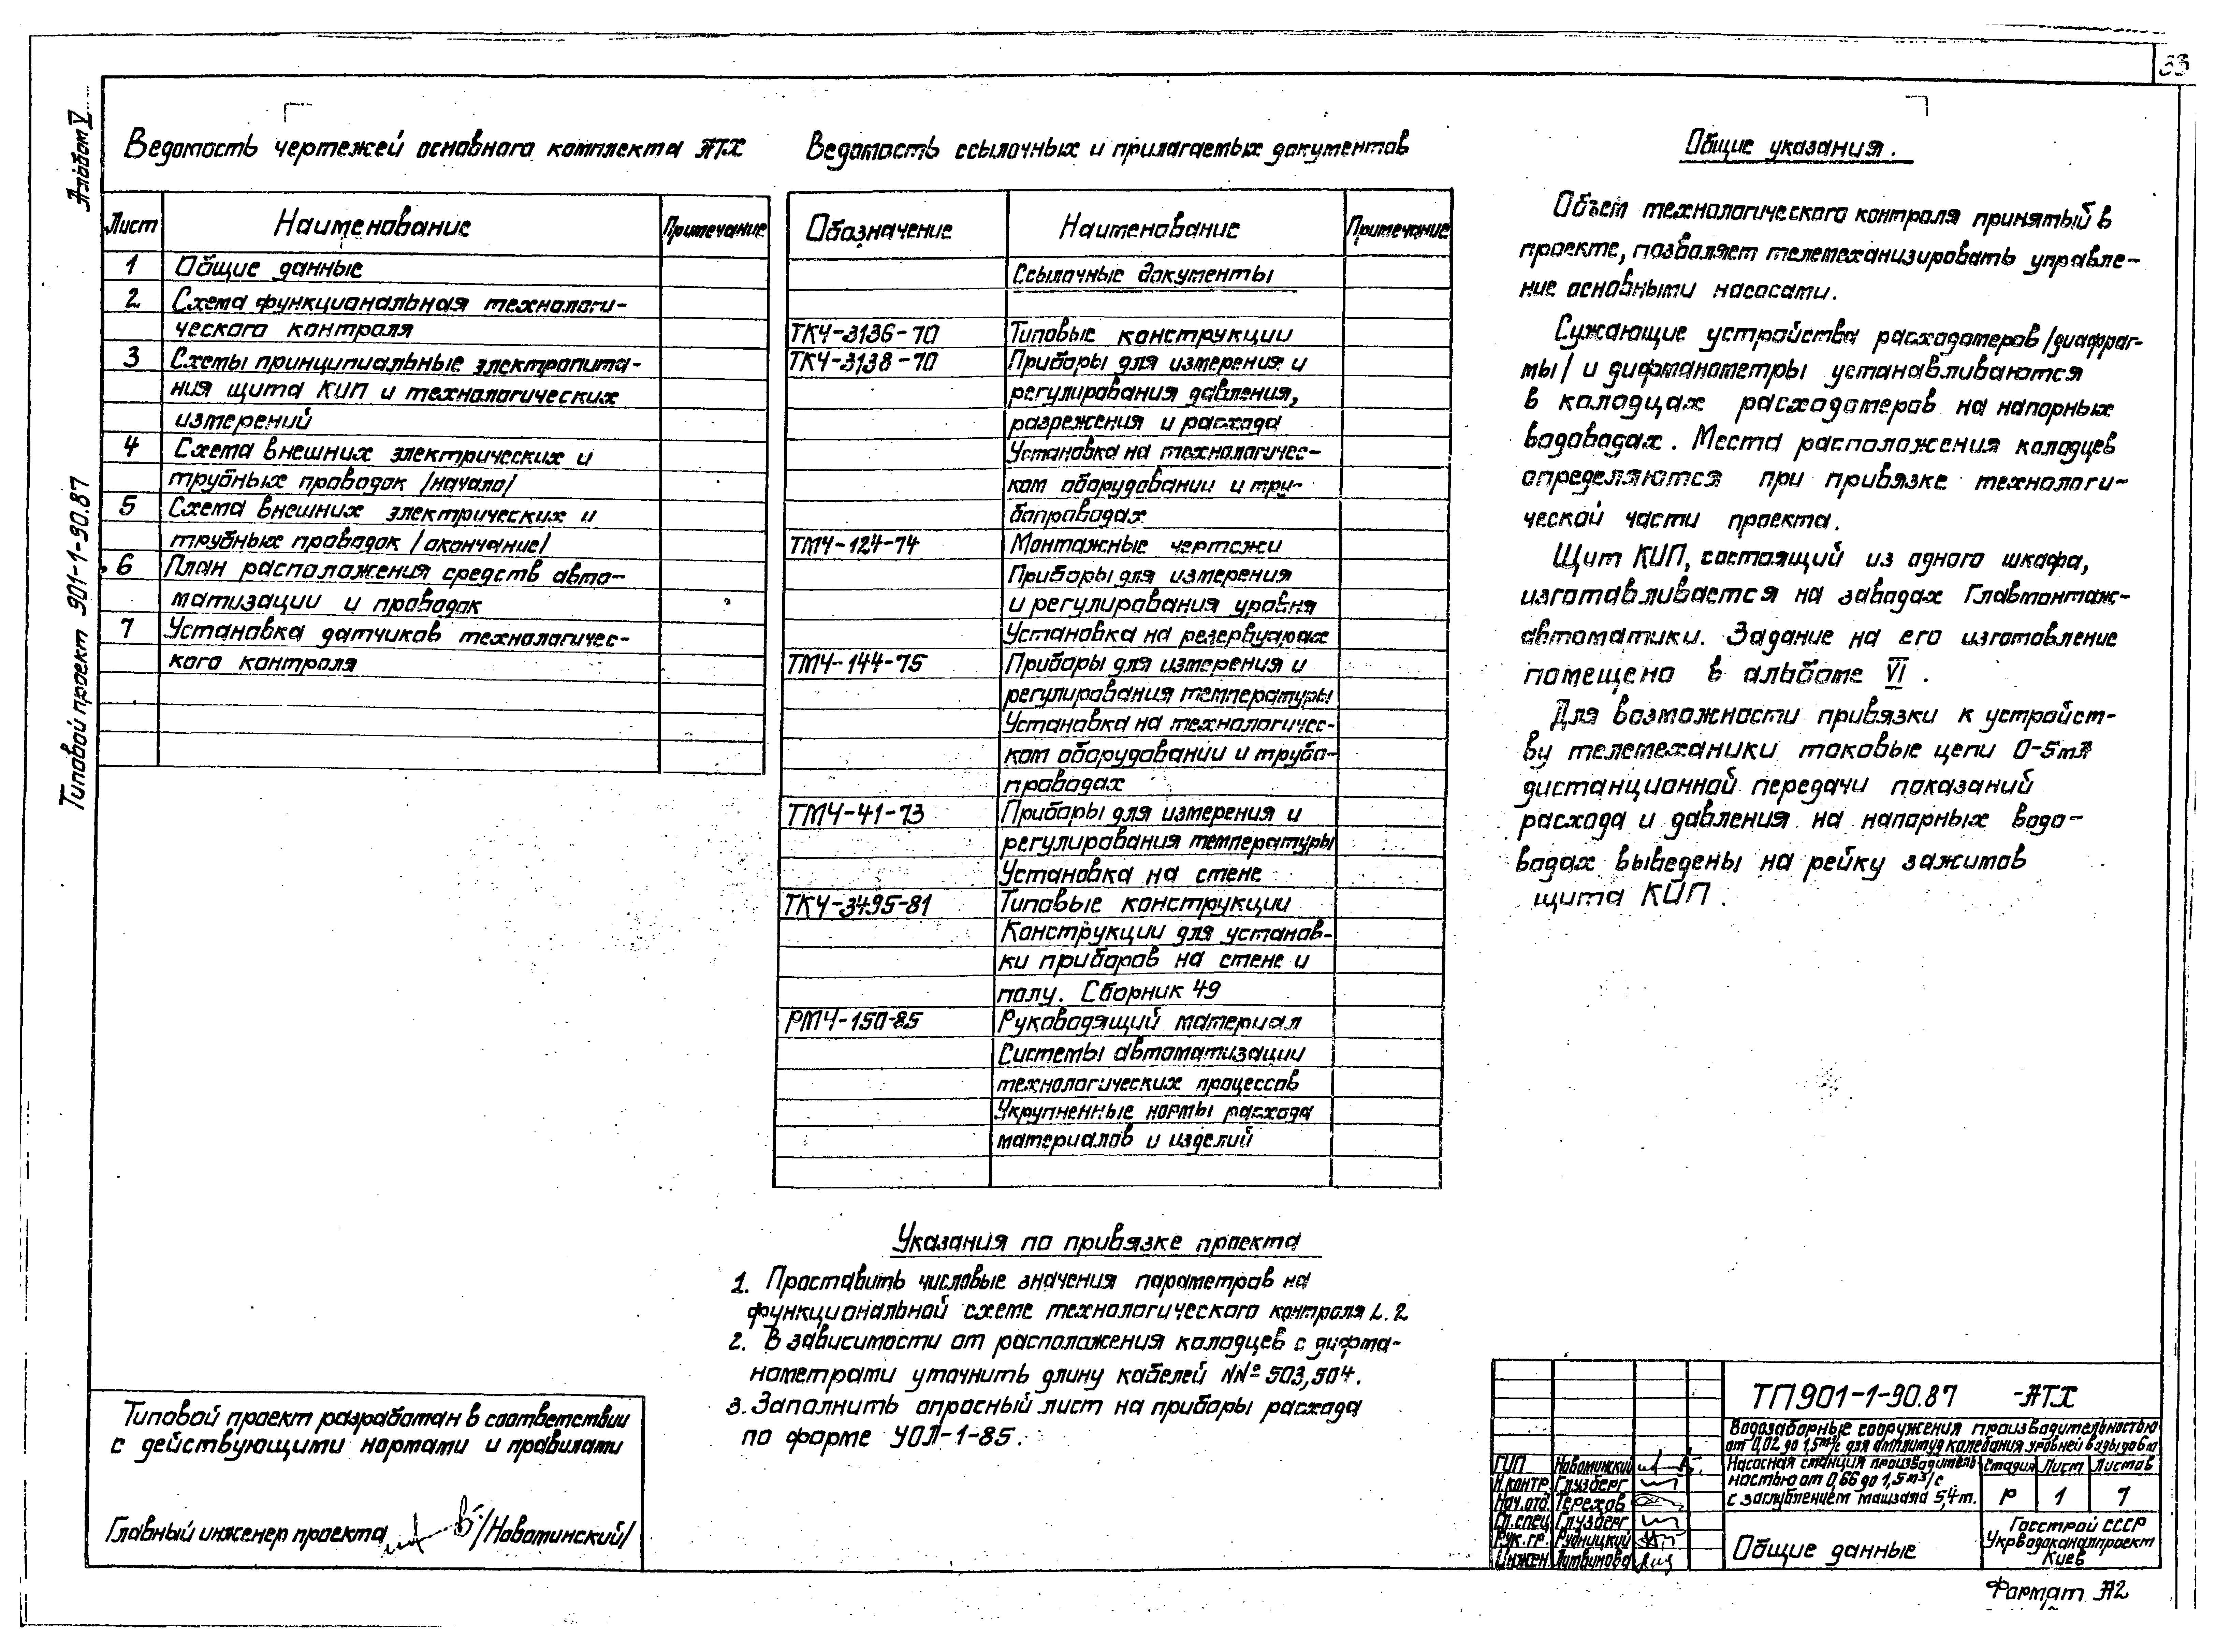 33
Альбом V
Типовой проект 901-1-90.87
Ведомость чертежей основного комплекта АТХ
Лист Наименование Примечание
1 Общие данные
2 Схема функциональная технологи-
ческого контроля
3 Схемы принципиальные электропита-
ния щита КИП и технологических
измерений
4 Схема внешних электрических и
трубных проводок /начало/
5 Схема внешних электрических и
трубных проводок /окончание/
6 План расположения средств авто-
матизации и проводок
7 Установка датчиков технологичес-
кого контроля
Ведомость ссылочных и прилагаемых документов
Обозначение Наименование Примечание
Ссылочные документы
ТКЧ-3136-70 Типовые конструкции
ТКЧ-3138-70 Приборы для измерения и
регулирования давления,
разрежения и расхода
Установка на технологичес-
ком оборудовании и тру-
бопроводах
ТМЧ-124-74 Монтажные чертежи
Приборы для измерения
и регулирования уровня
Установка на резервуарах
ТМЧ-144-75 Приборы для измерения и
регулирования температуры
Установка на технологичес-
ком оборудовании и трубо-
проводах
ТМЧ-41-73 Приборы для измерения и
регулирования температуры
Установка на стене
ТКЧ-3495-81 Типовые конструкции
Конструкции для установ-
ки приборов на стене и
полу. Сборник 49
РМЧ-150-85 Руководящий материал
Системы автоматизации
технологических процессов
Укрупненные нормы расхода
материалов и изделий
Общие указания.
Объем технологического контроля принятый в
проекте, позволяет телемеханизировать управле-
ние основными насосами.
Сужающие устройства расходомеров /диафраг-
мы/ и дифманометры устанавливаются
в колодцах расходомеров на напорных
водоводах. Места расположения колодцев
определяются при привязке технологи-
ческой части проекта.
Щит КИП, состоящий из одного шкафа,
изготавливается на заводах Главмонтаж-
автоматики. Задание на его изготовление
помещено в альбоме VI.
Для возможности привязки к устройст-
ву телемеханики токовые цепи 0-5мА
дистанционной передачи показаний
расхода и давления на напорных водо-
водах выведены на рейку зажимов
щита КИП.
Указания по привязке проекта
1. Проставить числовые значения параметров на
функциональной схеме технологического контроля л. 2
2. В зависимости от расположения колодцев с дифма-
нометрами уточнить длину кабелей NNº 503,504.
3. Заполнить опросный лист на приборы расхода
по форме УОЛ-1-85.
Типовой проект разработан в соответствии
с действующими нормами и правилами
Главный инженер проекта /Новоминский/
ТП901-1-90.87 -АТХ
Водозаборные сооружения производительностью
от 0,02 до 1,5м³/с для амплитуд колебания уровней воды до 6м
Насосная станция производитель-
ностью от 0,66 до 1,5м³/с
с заглублением машзала 5,4м.
Стадия Лист Листов
Р 1 7
ГИП Новоминский
Н.контр. Глузберг
Нач.отд. Терехов
Гл.спец. Глузберг
Рук.гр. Рудницкий
Инжен. Литвинова
Общие данные
Госстрой СССР
Укрводоканалпроект
Киев
Формат А2